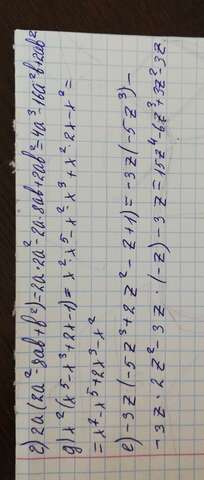 г) 2a(2a²-8ab+b²)=2a·2a²-2a·8ab+2ab²=4a³-16a²b+2ab²
д) x²(x⁵-x³+2x-1)=x²·x⁵-x²·x³+x²·2x-x²=
=x⁷-x⁵+2x³-x²
е) -3z(-5z³+2z²-z+1)=-3z(-5z³)-
-3z·2z²-3z·(-z)-3z=15z⁴-6z³+3z²-3z